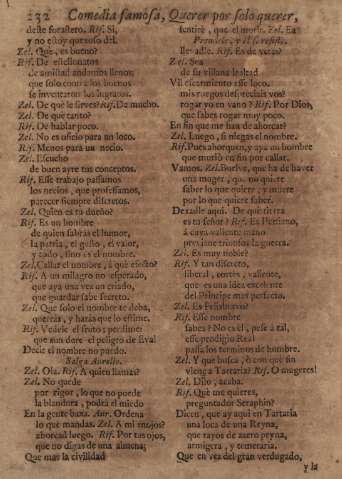 232 Comedia famosa, Querer por solo querer,
deste forastero. Rif. Si,
y no estoy quexoso dèl.
Zel. Què, es bueno?
Rif. De estelionatos
de amistad andamos llenos;
que solo contra los buenos
se inventaron los ingratos.
Zel. De què le sirves? Rif. De mucho.
Zel. De què tanto?
Rif. De hablar poco.
Zel. No es oficio para un loco.
Rif. Menos para un necio.
Zel. Escucho
de buen ayre tus conceptos.
Rif. Esse trabajo passamos
los necios, que professamos,
parecer siempre discretos.
Zel. Quien es tu dueño?
Rif. Es un hombre
de quien sabràs el humor,
la patria, el gusto, el valor,
y todo, sino es el nombre.
Zel. Callar el nombre, à què efecto?
Rif. A un milagro no esperado,
que aya una vez un criado,
que guardar sabe secreto.
Zel. Que solo el nombre te deba,
querràs, y haràs que lo estime.
Rif. Vedele el fruto; perdime:
que aun dure el peligro de Eva!
Decir el nombre no puedo.
Sale Aurelio.
Zel. Ola. Rif. A quien llamas?
Zel. No quede
por rigor, lo que no puede
la blandura, podrà el miedo
En la gente baxa. Aur. Ordena
lo que mandas. Zel. A mi enojos?
ahorcad luego. Rif. Por tus ojos,
que no digas de una almena;
Que mas la civilidad
sentirè, que el morir. Zel. Ea
Prendedle, y èl se resiste.
llevadle. Rif. Es de veras?
Zel. Sea
de su villana lealtad
Vil escarmiento esse loco.
mis ruegos desprecias vos?
rogar yo en vano? Rif. Por Dios,
que sabes rogar muy poco.
En fin que me han de ahorcar?
Zel. Luego, si niegas el nombre.
Rif. Pues ahorquen, y aya un hombre
que muriò en fin por callar.
Vamos. Zel. Buelve, que ha de haver
una muger, que no quiere
saber lo que quiere, y muere
por lo que quiere saber.
Dexadle aqui. De què tierra
es tu señor? Rif. Es Persiano,
à cuya valiente mano
previene triunfos la guerra.
Zel. Es muy noble?
Rif. Y tan discreto,
liberal, cortès, valiente,
que es una idea excelente
del Principe mas perfecto.
Zel. Es Felisbravo?
Rif. Esse nombre
sabes? No es èl, pese à tal,
esse prodigio Real
passa los terminos de hombre.
Zel. Y què busca, ò con què fin
vienga Tartaria? Rif. O mugeres!
Zel. Dilo, acaba.
Rif. Què me quieres,
preguntador Seraphin?
Dicen, que ay aqui en Tartaria
una loca de una Reyna,
que rayos de azero peyna,
armigera, y temeraria.
Que en vez del gran verdugado,
y la